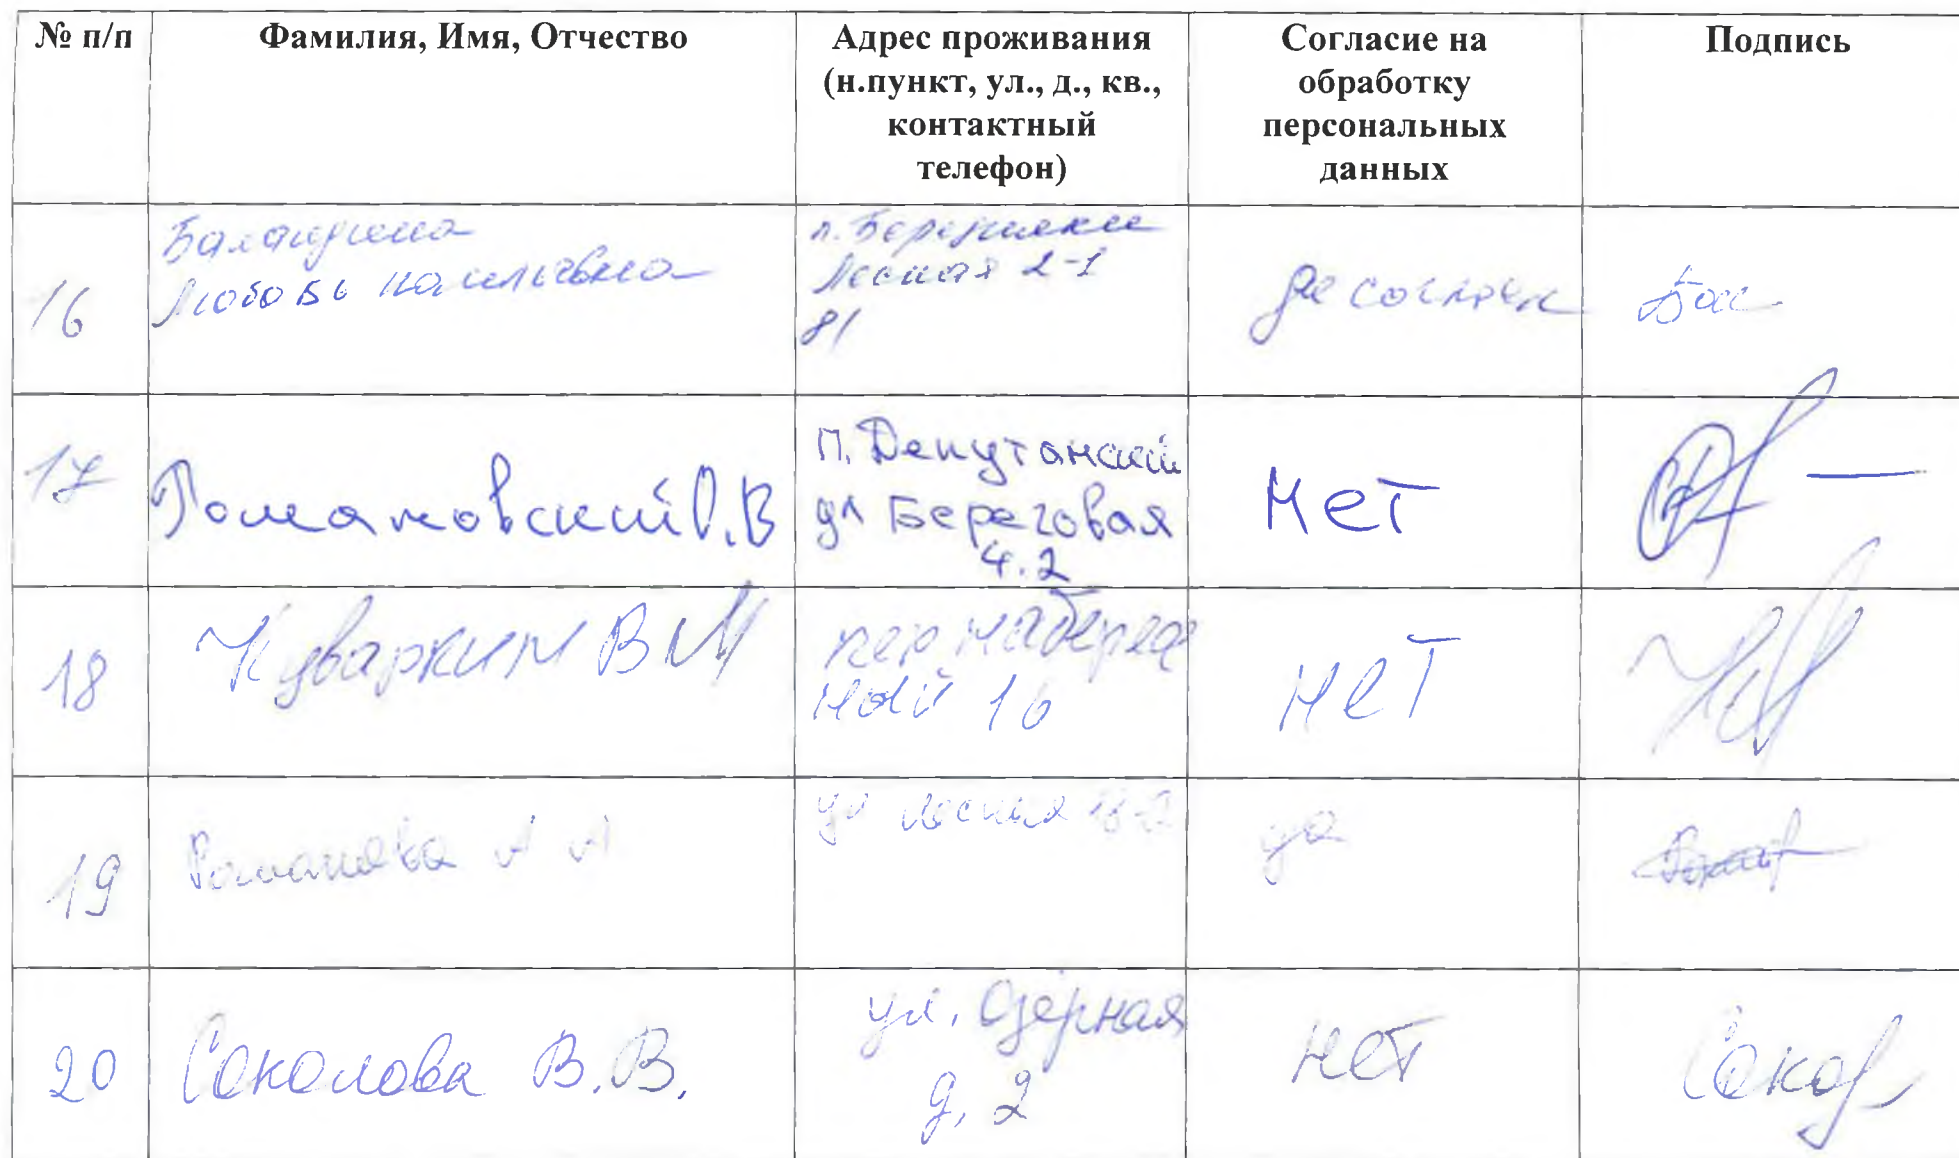 № п/п
Фамилия, Имя, Отчество
Адрес проживания
(н.пункт, ул., д., кв.,
контактный
телефон)
Согласие на
обработку
персональных
данных
Подпись
16
Баландина
Любовь
п.
Лесная 2-1
81
17
Романовский В
п. Депутатский
ул Береговая
4.2
нет
18
Куваркин В М
пер набереж
ный 16
нет
19
Романова А А
ул Лесная
да
20
Соколова В.В.
ул. Озерная
д, 2
нет
Сокол